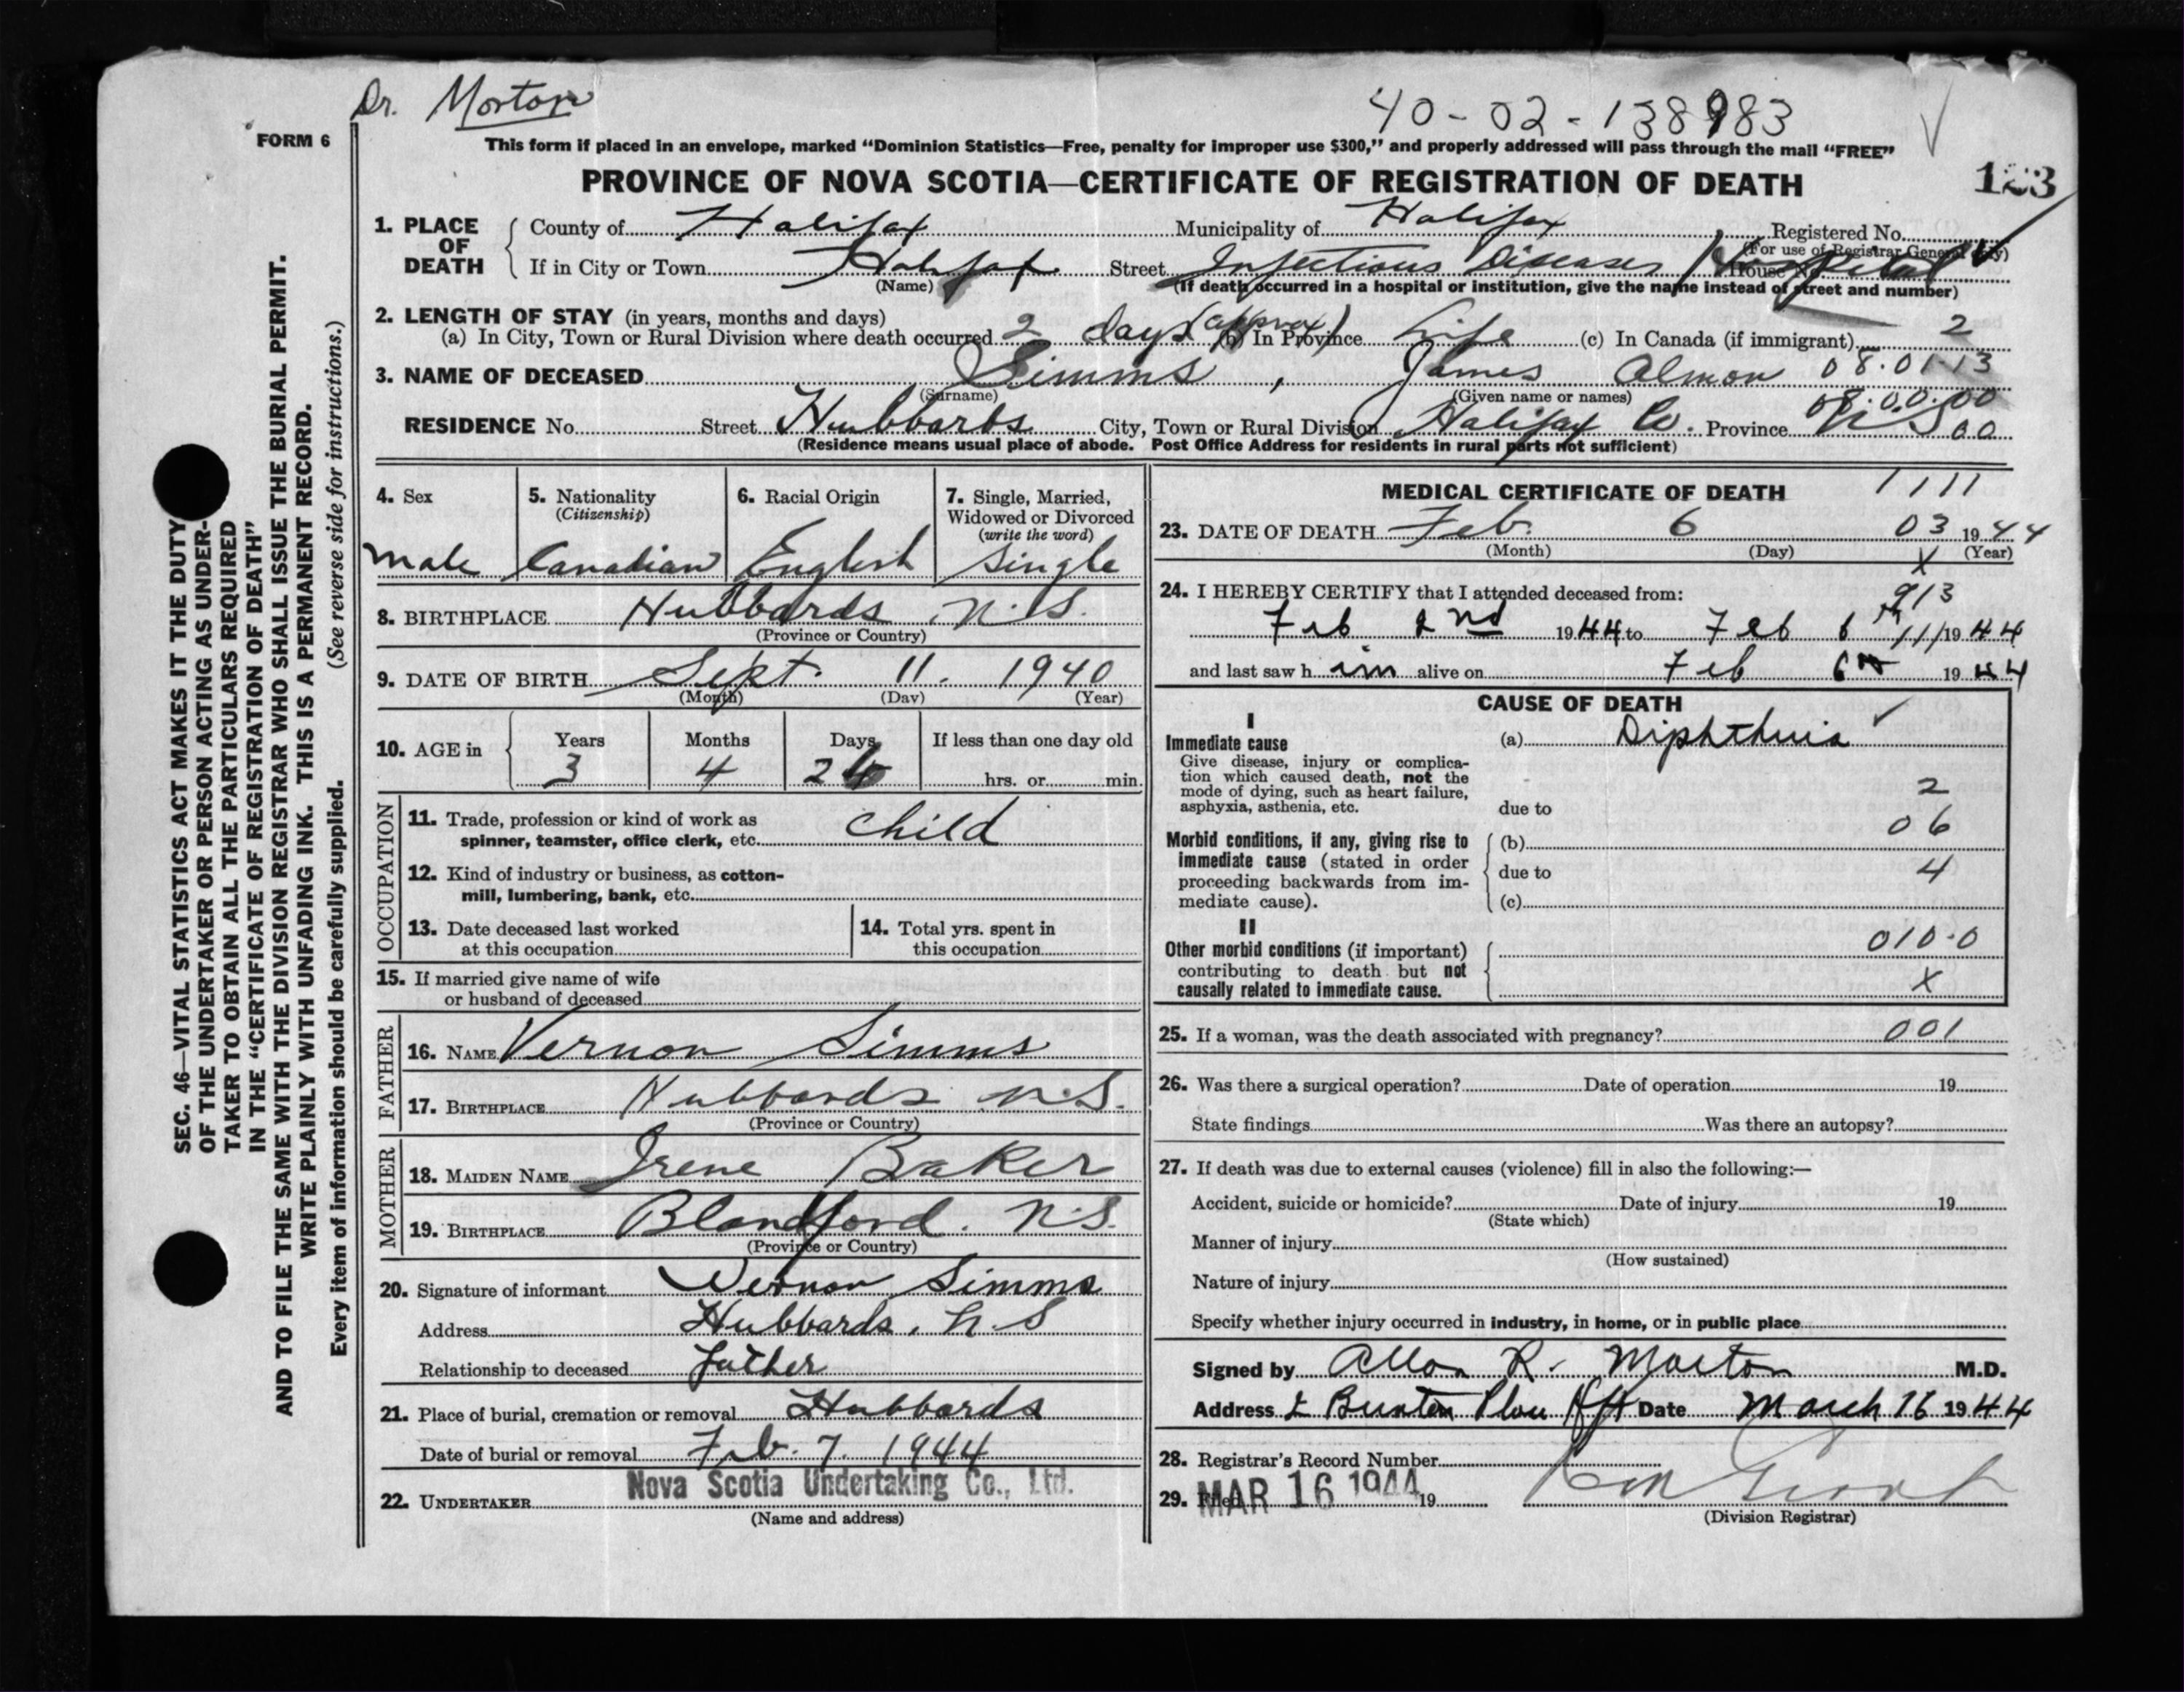 Dr. Morton
40-02-138983
FORM 6
This form if placed in an envelope, marked "Dominion Statistics—Free, penalty for improper use $300," and properly addressed will pass through the mail "FREE"
PROVINCE OF NOVA SCOTIA—CERTIFICATE OF REGISTRATION OF DEATH
1. PLACE OF DEATH
County of Halifax Municipality of Halifax Registered No.
(For use of Registrar General only)
If in City or Town Halifax Street Infectious Diseases Hospital House No.
(Name) (If death occurred in a hospital or institution, give the name instead of street and number)
2. LENGTH OF STAY (in years, months and days)
(a) In City, Town or Rural Division where death occurred 2 days (approx) (b) In Province Life (c) In Canada (if immigrant) 2
3. NAME OF DECEASED Simms, James Almon 08.01.13
(Surname) (Given name or names) 08.00.00
RESIDENCE No. Street Hubbards City, Town or Rural Division Halifax Co. Province N.S. 00
(Residence means usual place of abode. Post Office Address for residents in rural parts not sufficient)
4. Sex
male
5. Nationality
(Citizenship)
Canadian
6. Racial Origin
English
7. Single, Married,
Widowed or Divorced
(write the word)
Single
8. BIRTHPLACE Hubbards, N.S.
(Province or Country)
9. DATE OF BIRTH Sept. 11. 1940
(Month) (Day) (Year)
10. AGE in Years Months Days If less than one day old
3 4 hrs. or min.
OCCUPATION
11. Trade, profession or kind of work as
spinner, teamster, office clerk, etc. child
12. Kind of industry or business, as cotton-
mill, lumbering, bank, etc.
13. Date deceased last worked
at this occupation
14. Total yrs. spent in
this occupation
15. If married give name of wife
or husband of deceased
FATHER
16. NAME Vernon Simms
17. BIRTHPLACE Hubbards N.S.
(Province or Country)
MOTHER
18. MAIDEN NAME Irene Baker
19. BIRTHPLACE Blandford. N.S.
(Province or Country)
20. Signature of informant Vernon Simms
Address Hubbards, N.S
Relationship to deceased father
21. Place of burial, cremation or removal Hubbards
Date of burial or removal Feb. 7. 1944
22. UNDERTAKER Nova Scotia Undertaking Co., Ltd.
(Name and address)
MEDICAL CERTIFICATE OF DEATH 1111
23. DATE OF DEATH Feb. 6 03 1944
(Month) (Day) X (Year)
24. I HEREBY CERTIFY that I attended deceased from: 913
Feb 2nd 1944 to Feb 6th 111 1944
and last saw him alive on Feb 6th 1944
CAUSE OF DEATH
I
Immediate cause
Give disease, injury or complica-
tion which caused death, not the
mode of dying, such as heart failure,
asphyxia, asthenia, etc.
(a) Diphtheria
2
due to
06
Morbid conditions, if any, giving rise to
immediate cause (stated in order
proceeding backwards from im-
mediate cause).
(b)
due to 4
(c)
II
Other morbid conditions (if important)
contributing to death but not
causally related to immediate cause.
010.0
X
25. If a woman, was the death associated with pregnancy? 001
26. Was there a surgical operation? Date of operation 19
State findings Was there an autopsy?
27. If death was due to external causes (violence) fill in also the following:—
Accident, suicide or homicide? Date of injury 19
(State which)
Manner of injury
(How sustained)
Nature of injury
Specify whether injury occurred in industry, in home, or in public place
Signed by Allan R. Morton M.D.
Address Date March 16 1944
28. Registrar's Record Number
29. Filed MAR 16 1944 19
(Division Registrar)
SEC. 46—VITAL STATISTICS ACT MAKES IT THE DUTY
OF THE UNDERTAKER OR PERSON ACTING AS UNDER-
TAKER TO OBTAIN ALL THE PARTICULARS REQUIRED
IN THE "CERTIFICATE OF REGISTRATION OF DEATH"
AND TO FILE THE SAME WITH THE DIVISION REGISTRAR WHO SHALL ISSUE THE BURIAL PERMIT.
WRITE PLAINLY WITH UNFADING INK. THIS IS A PERMANENT RECORD.
Every item of information should be carefully supplied. (See reverse side for instructions.)